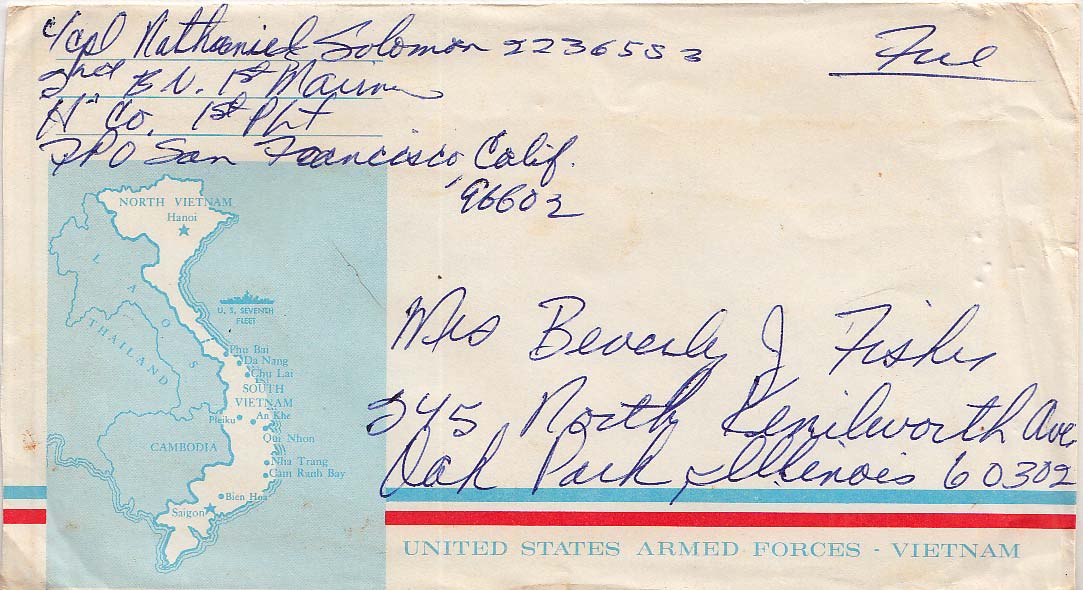 L/cpl Nathaniel Solomon 2236553
Free
2nd BN. 1st Marines
"H" Co. 1st Plt
FPO San Francisco, Calif.
96602
NORTH VIETNAM
Hanoi
LAOS
U. S. SEVENTH
FLEET
THAILAND
Phu Bai
Da Nang
Chu Lai
SOUTH
VIETNAM
Pleiku
An Khe
Qui Nhon
CAMBODIA
Nha Trang
Cam Ranh Bay
Bien Hoa
Saigon
Mrs Beverly J Fisher
245 North Kenilworth Ave.
Oak Park, Illinois 60302
UNITED STATES ARMED FORCES - VIETNAM